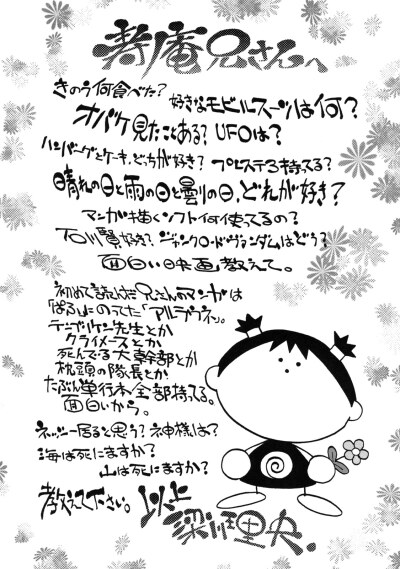 寿庵兄さんへ
きのう何食べた？ 好きなモビルスーツは何？
オバケ見たことある？ UFOは？
ハンバーグとケーキ、どちが好き？ プレステ3持ってる？
晴れの日と雨の日と曇りの日、どれが好き？
マンガ描くソフト何使ってるの？
石川賢好き？ ジャンクロードヴァンダムはどう？
面白い映画教えて。
初めて読んだ兄さんのマンガは
「ぱふ」にのってた「アルデラミン」。
デンプシケン先生とか
クライメーズとか
死んでる大幹部とか
枕頭の隊長とか
たぶん単行本全部持ってる。
面白いから。
ネッシー居ると思う？ 神様は？
海は死にますか？
山は死にますか？
教えてください。 以上
梁川理央.